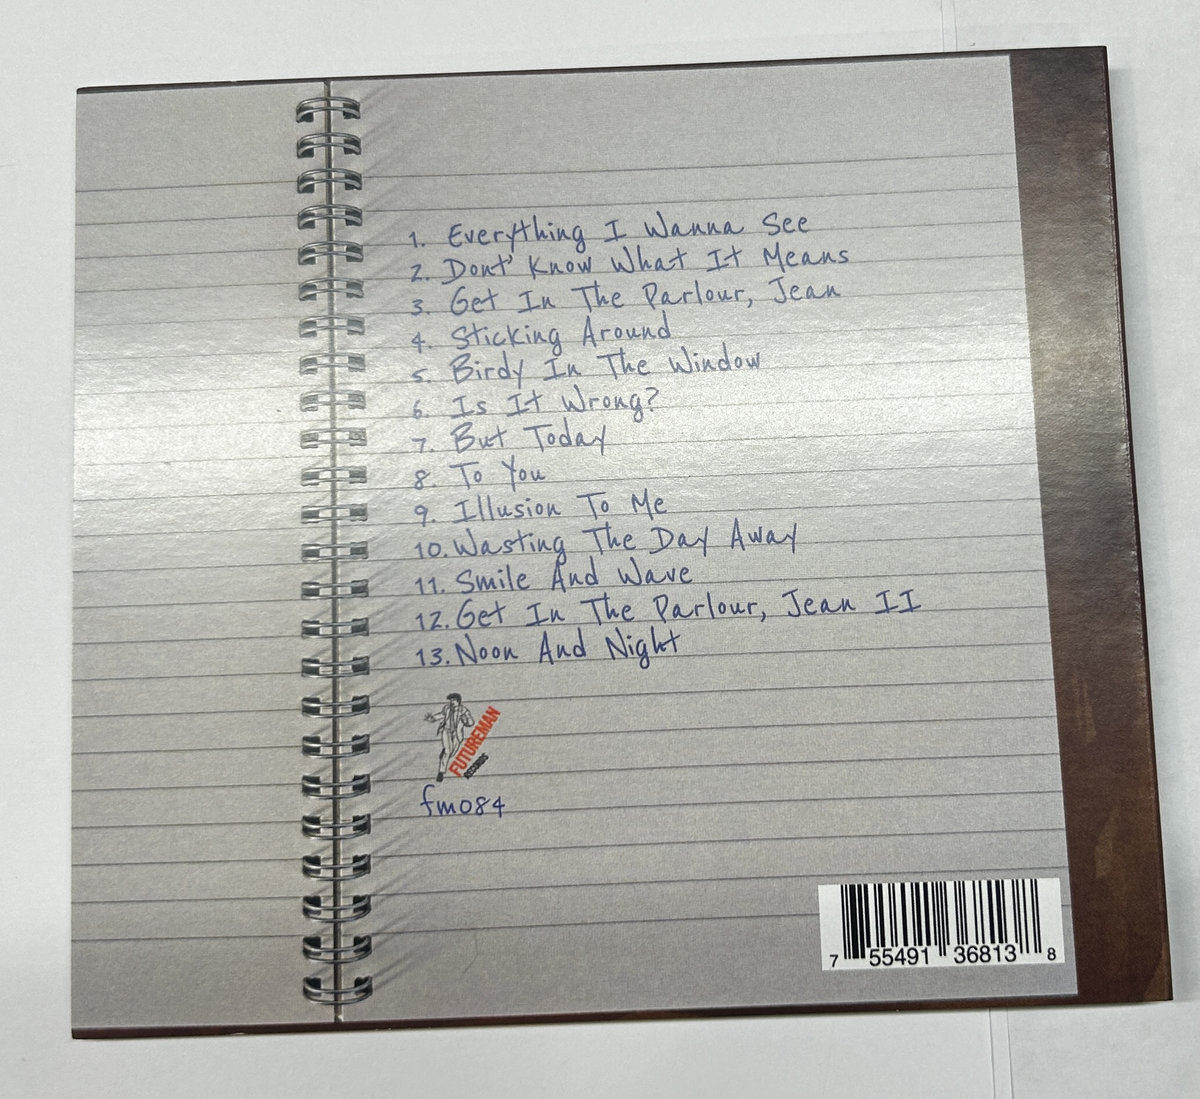 1. Everything I Wanna See
2. Dont' Know What It Means
3. Get In The Parlour, Jean
4. Sticking Around
5. Birdy In The Window
6. Is It Wrong?
7. But Today
8. To You
9. Illusion To Me
10. Wasting The Day Away
11. Smile And Wave
12. Get In The Parlour, Jean II
13. Noon And Night
FUTUREMAN
RECORDS
fm084
7 55491 36813 8